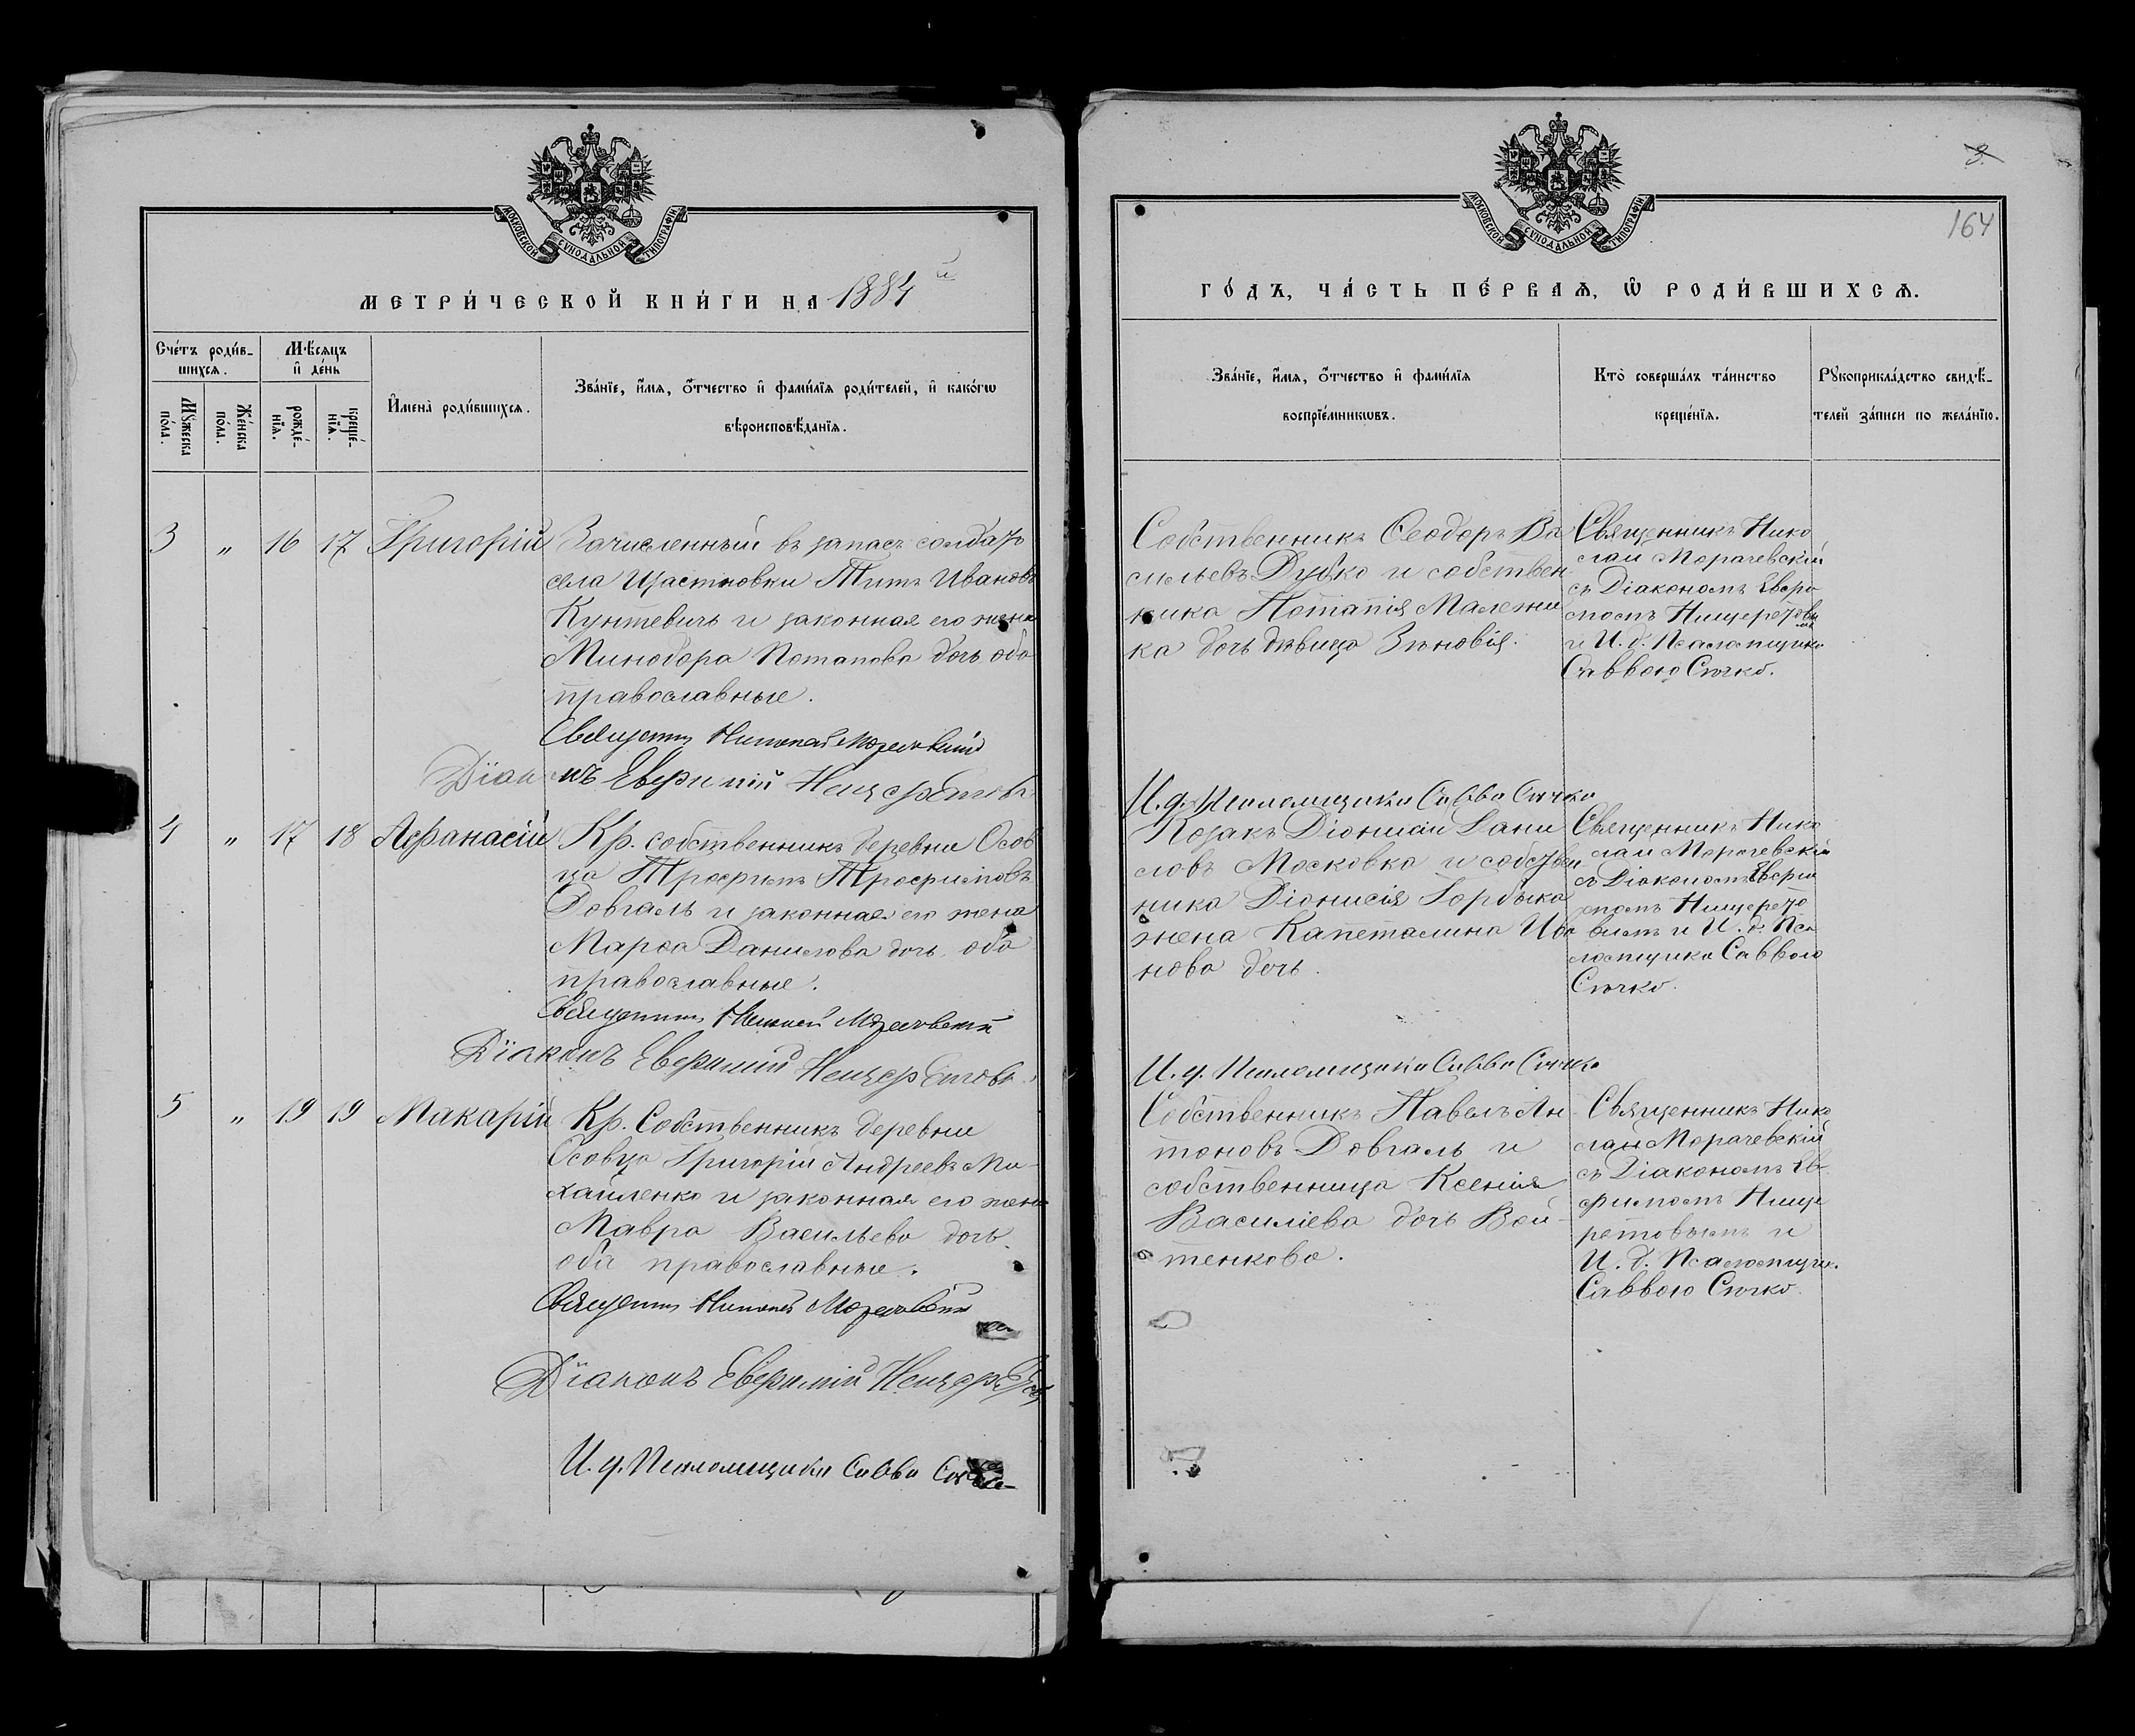 МОСКОВСКОЙ СѴНОДАЛЬНОЙ ТИПОГРАФІИ
МЕТРИ́ЧЕСКОЙ КНИ́ГИ НА 1884 й
Сче́тъ роди́в-
шихсѧ.
Мꙋ́жеска
по́ла.
Же́нска
по́ла.
Мѣ́сѧцъ
и҆ де́нь
рожде́-
нїѧ.
креще́-
нїѧ.
И҆мена̀ роди́вшихсѧ.
Зва́нїе, и҆́мѧ, ѻ҆́тчество и҆ фами́лїѧ роди́телей, и҆ како́гѡ
вѣроисповѣ́данїѧ.
3 " 16 17 Григорій Зачисленный въ запасъ солдатъ
села Щастновки Титъ Ивановъ
Кунтевичъ и законная его жена
Минодора Потапова дочь оба
православные.
Священникъ Николай Морачевскій
Діаконъ Евфимій Нещеретовъ
4 " 17 18 Афанасій Кр. собственникъ деревни Осов
ца Трофимъ Трофимовъ
Довгаль и законная его жена
Марѳа Данилова дочь, оба
православные.
Священникъ Николай Морачевскій
Діаконъ Евфимій Нещеретовъ
5 " 19 19 Макарій Кр. Собственникъ деревни
Осовца Григорій Андреевъ Ми-
хайленко и законная его жена
Мавра Васильева дочь
оба православные.
Священникъ Николай Морачевскій
Діаконъ Евфимій Нещеретовъ
И. д. Псаломщика Савва Сѣчко
МОСКОВСКОЙ СѴНОДАЛЬНОЙ ТИПОГРАФІИ
3.
164
ГО́ДЪ, ЧА́СТЬ ПЕ́РВАѦ, Ѡ҆ РОДИ́ВШИХСѦ.
Зва́нїе, и҆́мѧ, ѻ҆́тчество и҆ фами́лїѧ
воспрїе́мникѡвъ.
Кто̀ соверша́лъ та́инство
креще́нїѧ.
Рꙋкоприкла́дство свидѣ́-
телей за́писи по жела́нїю.
Собственникъ Ѳеодоръ Ва
сильевъ Дубко и собствен
ника Потапія Малежи
ка дочь дѣвица Зѣновія.
Священникъ Нико
лай Морачевскій
съ Діакономъ Евфи
міемъ Нещеретовы
мъ
и И. д. Псаломщика
Саввою Сѣчко.
И. д. Псаломщика Савва Сѣчко
Козакъ Діонисій Дани
ловъ Московка и собствен
ника Діонисія Горбыка
жена Капеталина Ива
нова дочь.
Священникъ Нико
лай Морачевскій
съ Діакономъ Евфи
міемъ Нещерето
вымъ и И. д. Пса
ломщика Саввою
Сѣчко.
И. д. Псаломщика Савва Сѣчко
Собственникъ Павелъ Ан
тоновъ Довгаль и
собственница Ксенія
Василіева дочь Вой-
тенкова.
Священникъ Нико
лай Морачевскій
съ Діакономъ Ев-
фиміемъ Неще
ретовымъ и
И. д. Псаломщик.
Саввою Сѣчко.